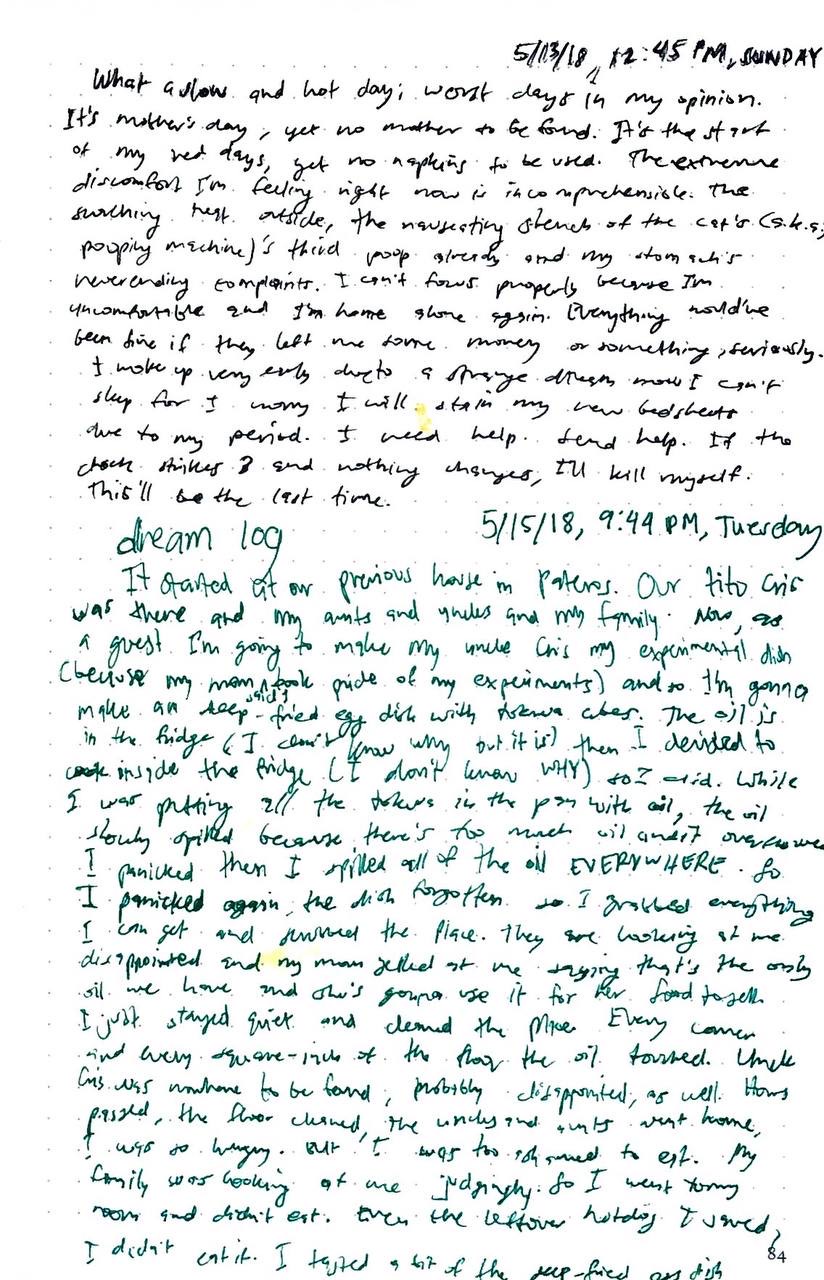 5/13/18, 12:45 PM, SUNDAY
What a slow and hot day; worst days in my opinion.
It's mother's day, yet no mother to be found. It's the start
of my red days, yet no napkins to be used. The extreme
discomfort I'm feeling right now is incomprehensible. The
scorching heat outside, the nauseating stench of the cat's (a.k.a;
pooping machine)'s third poop already and my stomach's
neverending complaints. I can't focus properly because I'm
uncomfortable and I'm home alone again. Everything would've
been fine if they left me some money or something, seriously.
I woke up very early due to a strange dream now I can't
sleep for I worry I will stain my new bedsheets
due to my period. I need help. Send help. If the
clock strikes 3 and nothing changes, I'll kill myself.
This'll be the last time.
5/15/18, 9:44 PM, Tuesday
dream log
It started at our previous house in Pateros. Our tito Cris
was there and my aunts and uncles and my family. Now, as
a guest I'm going to make my uncle Cris my experimental dish
(because my mom took pride of my experiments) and so I'm gonna
make an deep-fried egg dish with tokwa cubes. The oil is
in the fridge (I don't know why but it is) then I decided to
cook inside the fridge (I don't know WHY) so I did. While
I was putting all the tokwa in the pan with oil, the oil
slowly spilled because there's too much oil and it overflowed
I panicked then I spilled all of the oil EVERYWHERE. So
I panicked again, the dish forgotten. so I grabbed everything
I can get and scrubbed the place. They are looking at me
disappointed and my mom yelled at me saying that's the only
oil we have and she's gonna use it for her food to sell.
I just stayed quiet and cleaned the place Every corner
and every square-inch of the floor the oil touched. Uncle
Cris was nowhere to be found, probably disappointed, as well. Hours
passed, the floor cleaned, the uncles and aunts went home,
I was so hungry. But I was too ashamed to eat. My
family was looking at me judgingly. So I went to my
room and didn't eat. Even the leftover hotdog I saved,
I didn't eat it. I tasted a bit of the deep-fried egg dish
84